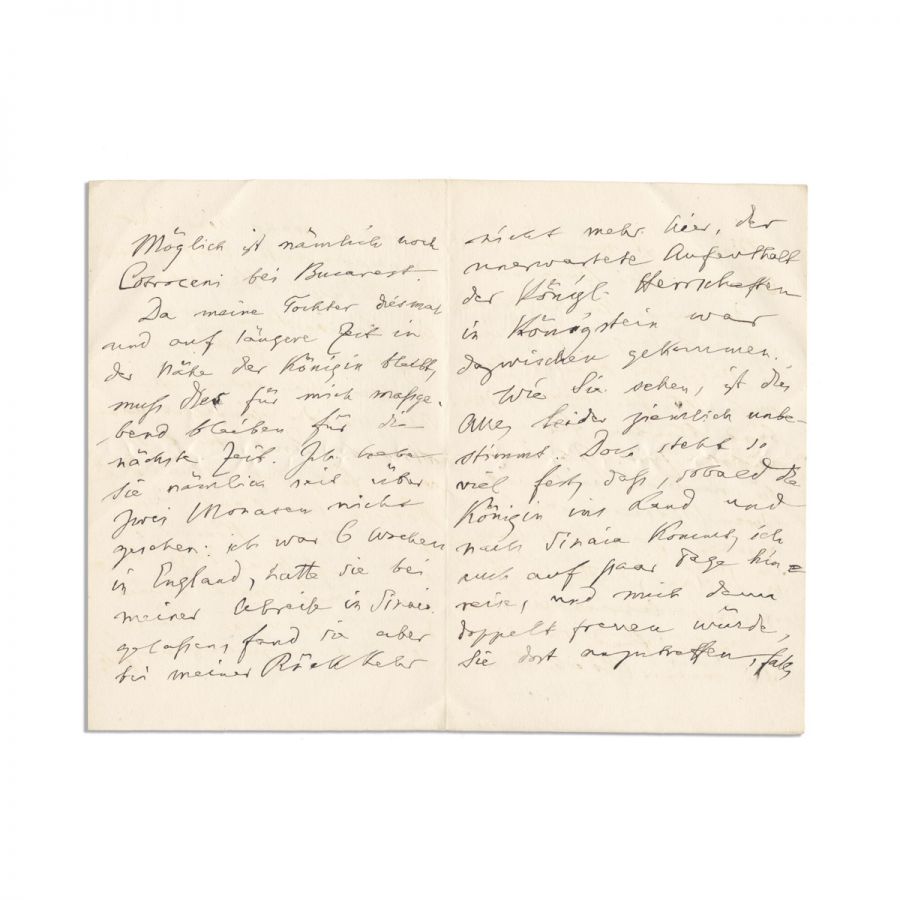 Möglich ist nämlich noch
Cotroceni bei Bucarest.
Da meine Tochter diesmal
und auf längere Zeit in
der Nähe der Königin bleibt,
muß dies für mich maßge-
bend bleiben für die
nächste Zeit. Ich habe
sie nämlich seit über
zwei Monaten nicht
gesehen: ich war 6 Wochen
in England, hatte sie bei
meiner Abreise in Sinaia
gelaßen, fand sie aber
bei meiner Rückkehr
nicht mehr hier, der
unerwartete Aufenthalt
der Königl. Herrschaften
in Königstein war
dazwischen gekommen.
Wie Sie sehen, ist dies
Alles leider ziemlich unbe-
stimmt. Doch steht so
viel fest, daß, sobald die
Königin ins Land und
nach Sinaia kommt, ich
auf paar Tage hin=
reise, und mich dann
doppelt freuen würde,
Sie dort anzutreffen, falls